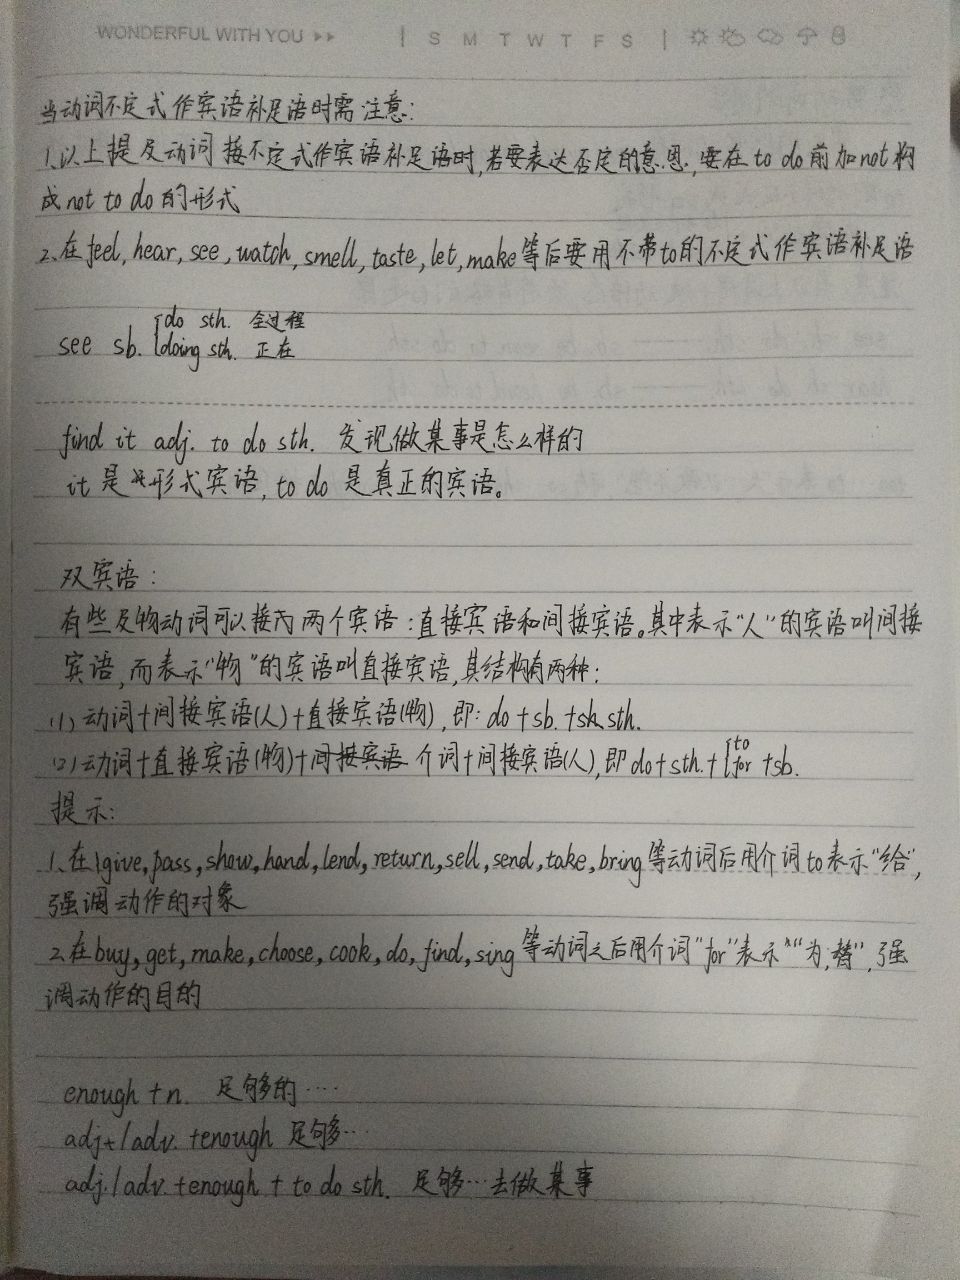 WONDERFUL WITH YOU ▸▸ | S M T W T F S |
当动词不定式作宾语补足语时需注意:
1.以上提及动词接不定式作宾语补足语时,若要表达否定的意思,要在to do前加not构
成not to do的形式
2.在feel, hear, see, watch, smell, taste, let, make等后要用不带to的不定式作宾语补足语
do sth. 全过程
see sb. doing sth. 正在
find it adj. to do sth. 发现做某事是怎么样的
it 是形式宾语, to do 是真正的宾语。
双宾语:
有些及物动词可以接两个宾语:直接宾语和间接宾语。其中表示“人”的宾语叫间接
宾语,而表示“物”的宾语叫直接宾语,其结构有两种:
(1)动词+间接宾语(人)+直接宾语(物),即: do+sb.+sth.
(2)动词+直接宾语(物)+介词+间接宾语(人),即 do+sth.+{to for +sb.
提示:
1.在give, pass, show, hand, lend, return, sell, send, take, bring等动词后用介词to表示“给”,
强调动作的对象
2.在buy, get, make, choose, cook, do, find, sing等动词之后用介词“for”表示“为;替”,强
调动作的目的
enough +n. 足够的····
adj./adv. +enough 足够···
adj./adv. +enough + to do sth. 足够···去做某事